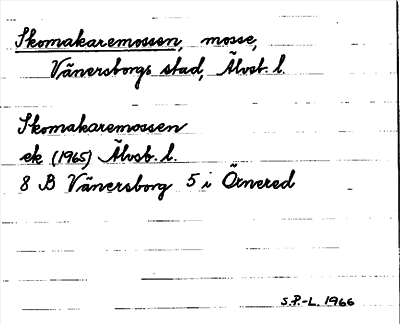 Skomakaremossen, mosse,
Vänersborgs stad, Älvsb. l.
Skomakaremossen
ek (1965) Älvsb. l.
8 B Vänersborg 5 i Örnered
S.P.-L. 1966